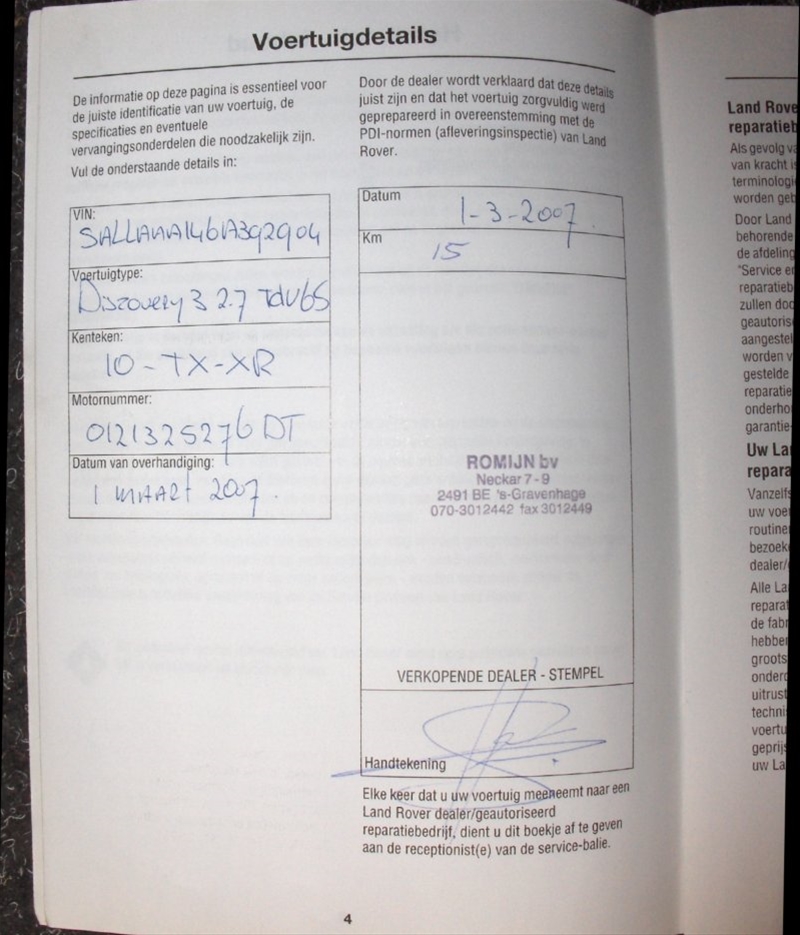 Voertuigdetails
De informatie op deze pagina is essentieel voor
de juiste identificatie van uw voertuig, de
specificaties en eventuele
vervangingsonderdelen die noodzakelijk zijn.
Vul de onderstaande details in:
VIN:
SALLAAA146A392904
Voertuigtype:
Discovery 3 2.7 TdV6S
Kenteken:
10-TX-XR
Motornummer:
0121325276DT
Datum van overhandiging:
1 MAART 2007.
Door de dealer wordt verklaard dat deze details
juist zijn en dat het voertuig zorgvuldig werd
geprepareerd in overeenstemming met de
PDI-normen (afleveringsinspectie) van Land
Rover.
Datum
1-3-2007.
Km
15
ROMIJN bv
Neckar 7-9
2491 BE 's-Gravenhage
070-3012442 fax 3012449
VERKOPENDE DEALER - STEMPEL
Handtekening
Elke keer dat u uw voertuig meeneemt naar een
Land Rover dealer/geautoriseerd
reparatiebedrijf, dient u dit boekje af te geven
aan de receptionist(e) van de service-balie.
4
Land Rove
reparatieb
Als gevolg va
van kracht is
terminologi
worden geb
Door Land
behorende
de afdeling
"Service en
reparatieb
zullen doo
geautoris
aangestel
worden v
gestelde
reparatie
onderho
garantie-
Uw La
repara
Vanzelfs
uw voer
routine
bezoek
dealer/
Alle La
reparat
de fabr
hebben
groots
onderd
uitrust
techni
voertu
geprij
uw La